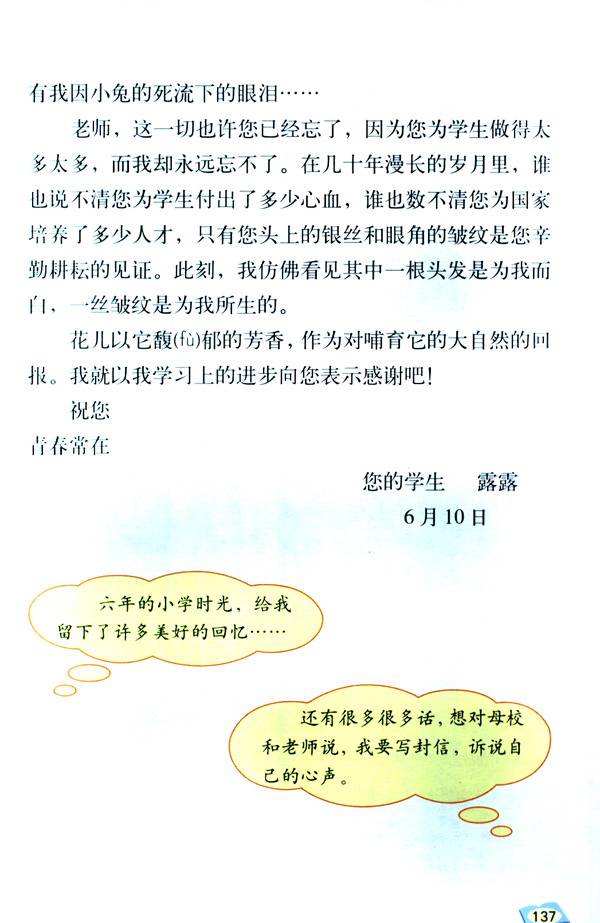 有我因小兔的死流下的眼泪……
老师，这一切也许您已经忘了，因为您为学生做得太
多太多，而我却永远忘不了。在几十年漫长的岁月里，谁
也说不清您为学生付出了多少心血，谁也数不清您为国家
培养了多少人才，只有您头上的银丝和眼角的皱纹是您辛
勤耕耘的见证。此刻，我仿佛看见其中一根头发是为我而
白，一丝皱纹是为我所生的。
花儿以它馥(fù)郁的芳香，作为对哺育它的大自然的回
报。我就以我学习上的进步向您表示感谢吧！
祝您
青春常在
您的学生 露露
6月10日
六年的小学时光，给我
留下了许多美好的回忆……
还有很多很多话，想对母校
和老师说，我要写封信，诉说自
己的心声。
137